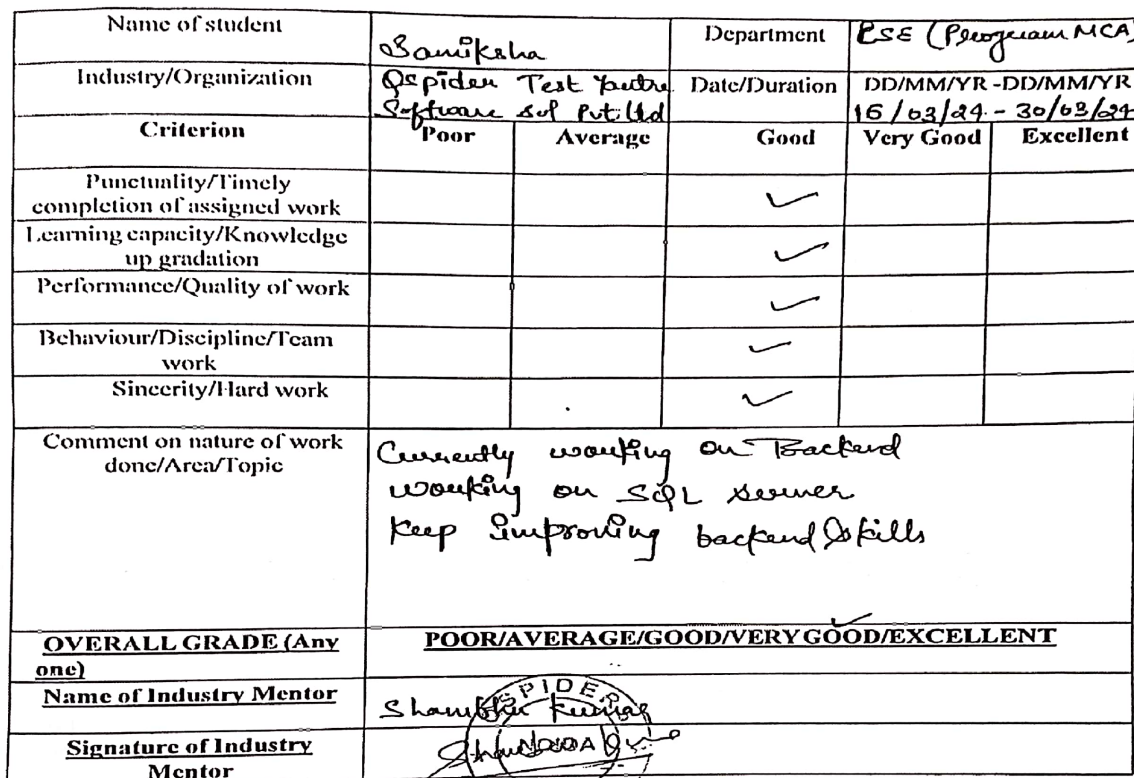 Name of student
Samiksha
Department
CSE (Program MCA)
Industry/Organization
Qspider Test Yantra
Software Sol Pvt. Ltd
Date/Duration
DD/MM/YR -DD/MM/YR
16/03/24 - 30/03/24
Criterion Poor Average Good Very Good Excellent
Punctuality/Timely
completion of assigned work
Learning capacity/Knowledge
up gradation
Performance/Quality of work
Behaviour/Discipline/Team
work
Sincerity/Hard work
Comment on nature of work
done/Area/Topic
Currently working on Backend
working on SQL server
Keep improving backend skills
OVERALL GRADE (Any
one)
POOR/AVERAGE/GOOD/VERY GOOD/EXCELLENT
Name of Industry Mentor
Shambhu Kumar
SPIDERS
NOIDA
Signature of Industry
Mentor